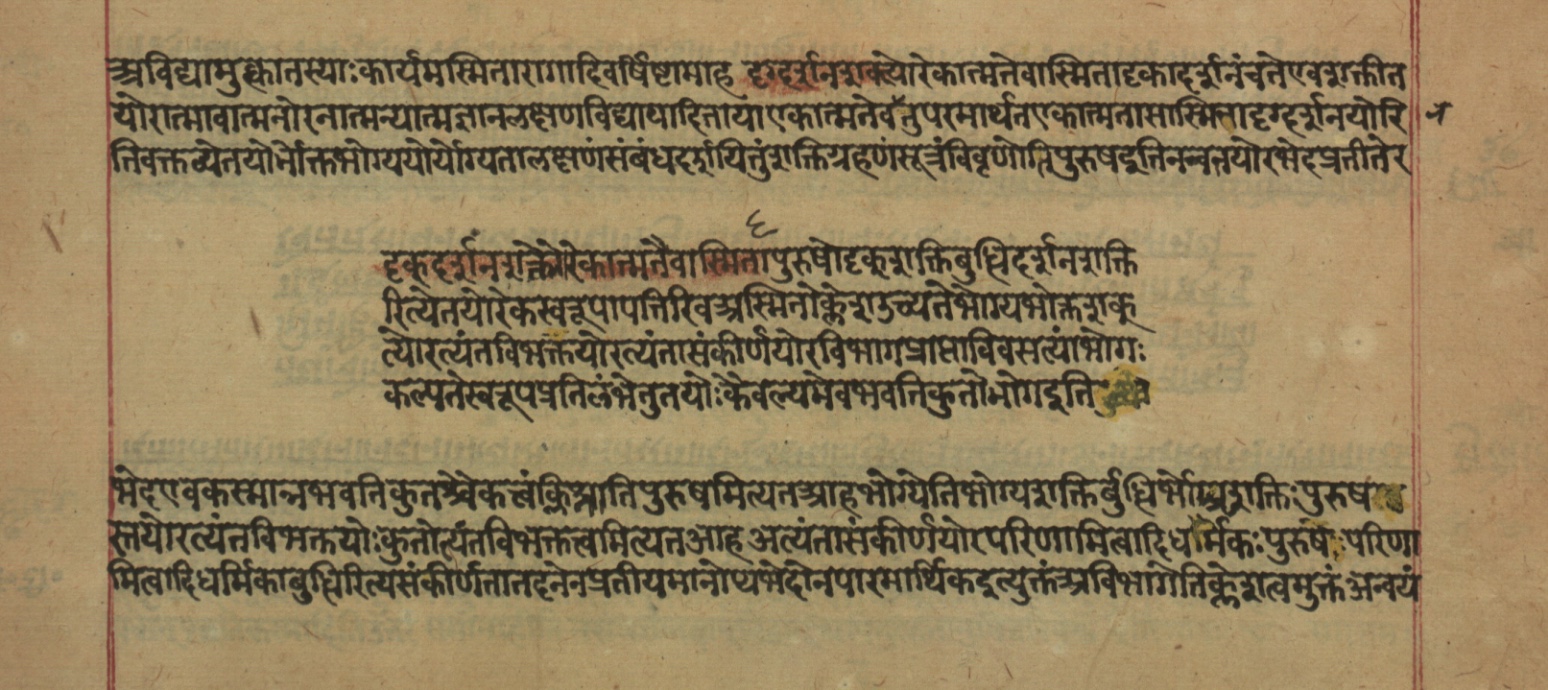 अविद्यामुक्त्वातस्याःकार्यमस्मितारागादिवर्षिष्टामाह दृग्दर्शनशक्त्योरेकात्मतेवास्मितादृकादृर्शनंचतेएवशक्तीत
योरात्मावात्मनोरनात्मन्यात्मज्ञानलक्षणविद्यापादितायाएकात्मतेवनुपरमार्थतएकात्मतासास्मितादृग्दर्शनयोरि
तिवक्तव्येतयोर्भोक्तभोग्ययोर्योग्यतालक्षणंसंबंधदर्शयितुंशक्तिग्रहणंसूत्रंविवृणोतिपुरुषइतिनन्वनयोरभेदप्रतीतेर
६
दृक्दर्शनशक्तोरेकात्मतैवास्मितापुरुषोदृक्शक्तिबुद्धिदर्शनशक्ति
रित्येतयोरेकस्वरूपापत्तिरिवअस्मितोक्लेशउच्यतेभोग्यभोक्तशक्
त्योरत्यंतविभक्तयोरत्यंतासंकीर्णयोरविभागप्राप्ताविवसत्यांभोगः
कल्पतेस्वरूपप्रतिलंभेतुतयोःकैवल्यमेवभवतिकुतोभोगइति
भेदएवकस्मान्नभवतिकुतश्चैकत्वंक्लिश्नातिपुरुषमित्यतआहभोग्येतिभोग्यशक्तिर्बुद्धिर्भोग्यशक्तिःपुरुष
स्तयोरत्यंतविभक्तयोःकुतोत्यंतविभक्तत्वमित्यतआहअत्यंतासंकीर्णयोरपरिणामित्वादिधर्मिकःपुरुषःपरिणा
मित्वादिधर्मिकाबुद्धिरित्यसंकीर्णतातदनेनप्रतीयमानोप्यभेदोनपारमार्थिकइत्युक्तंअविभागेतिक्लेशत्वमुक्तंअन्वयं